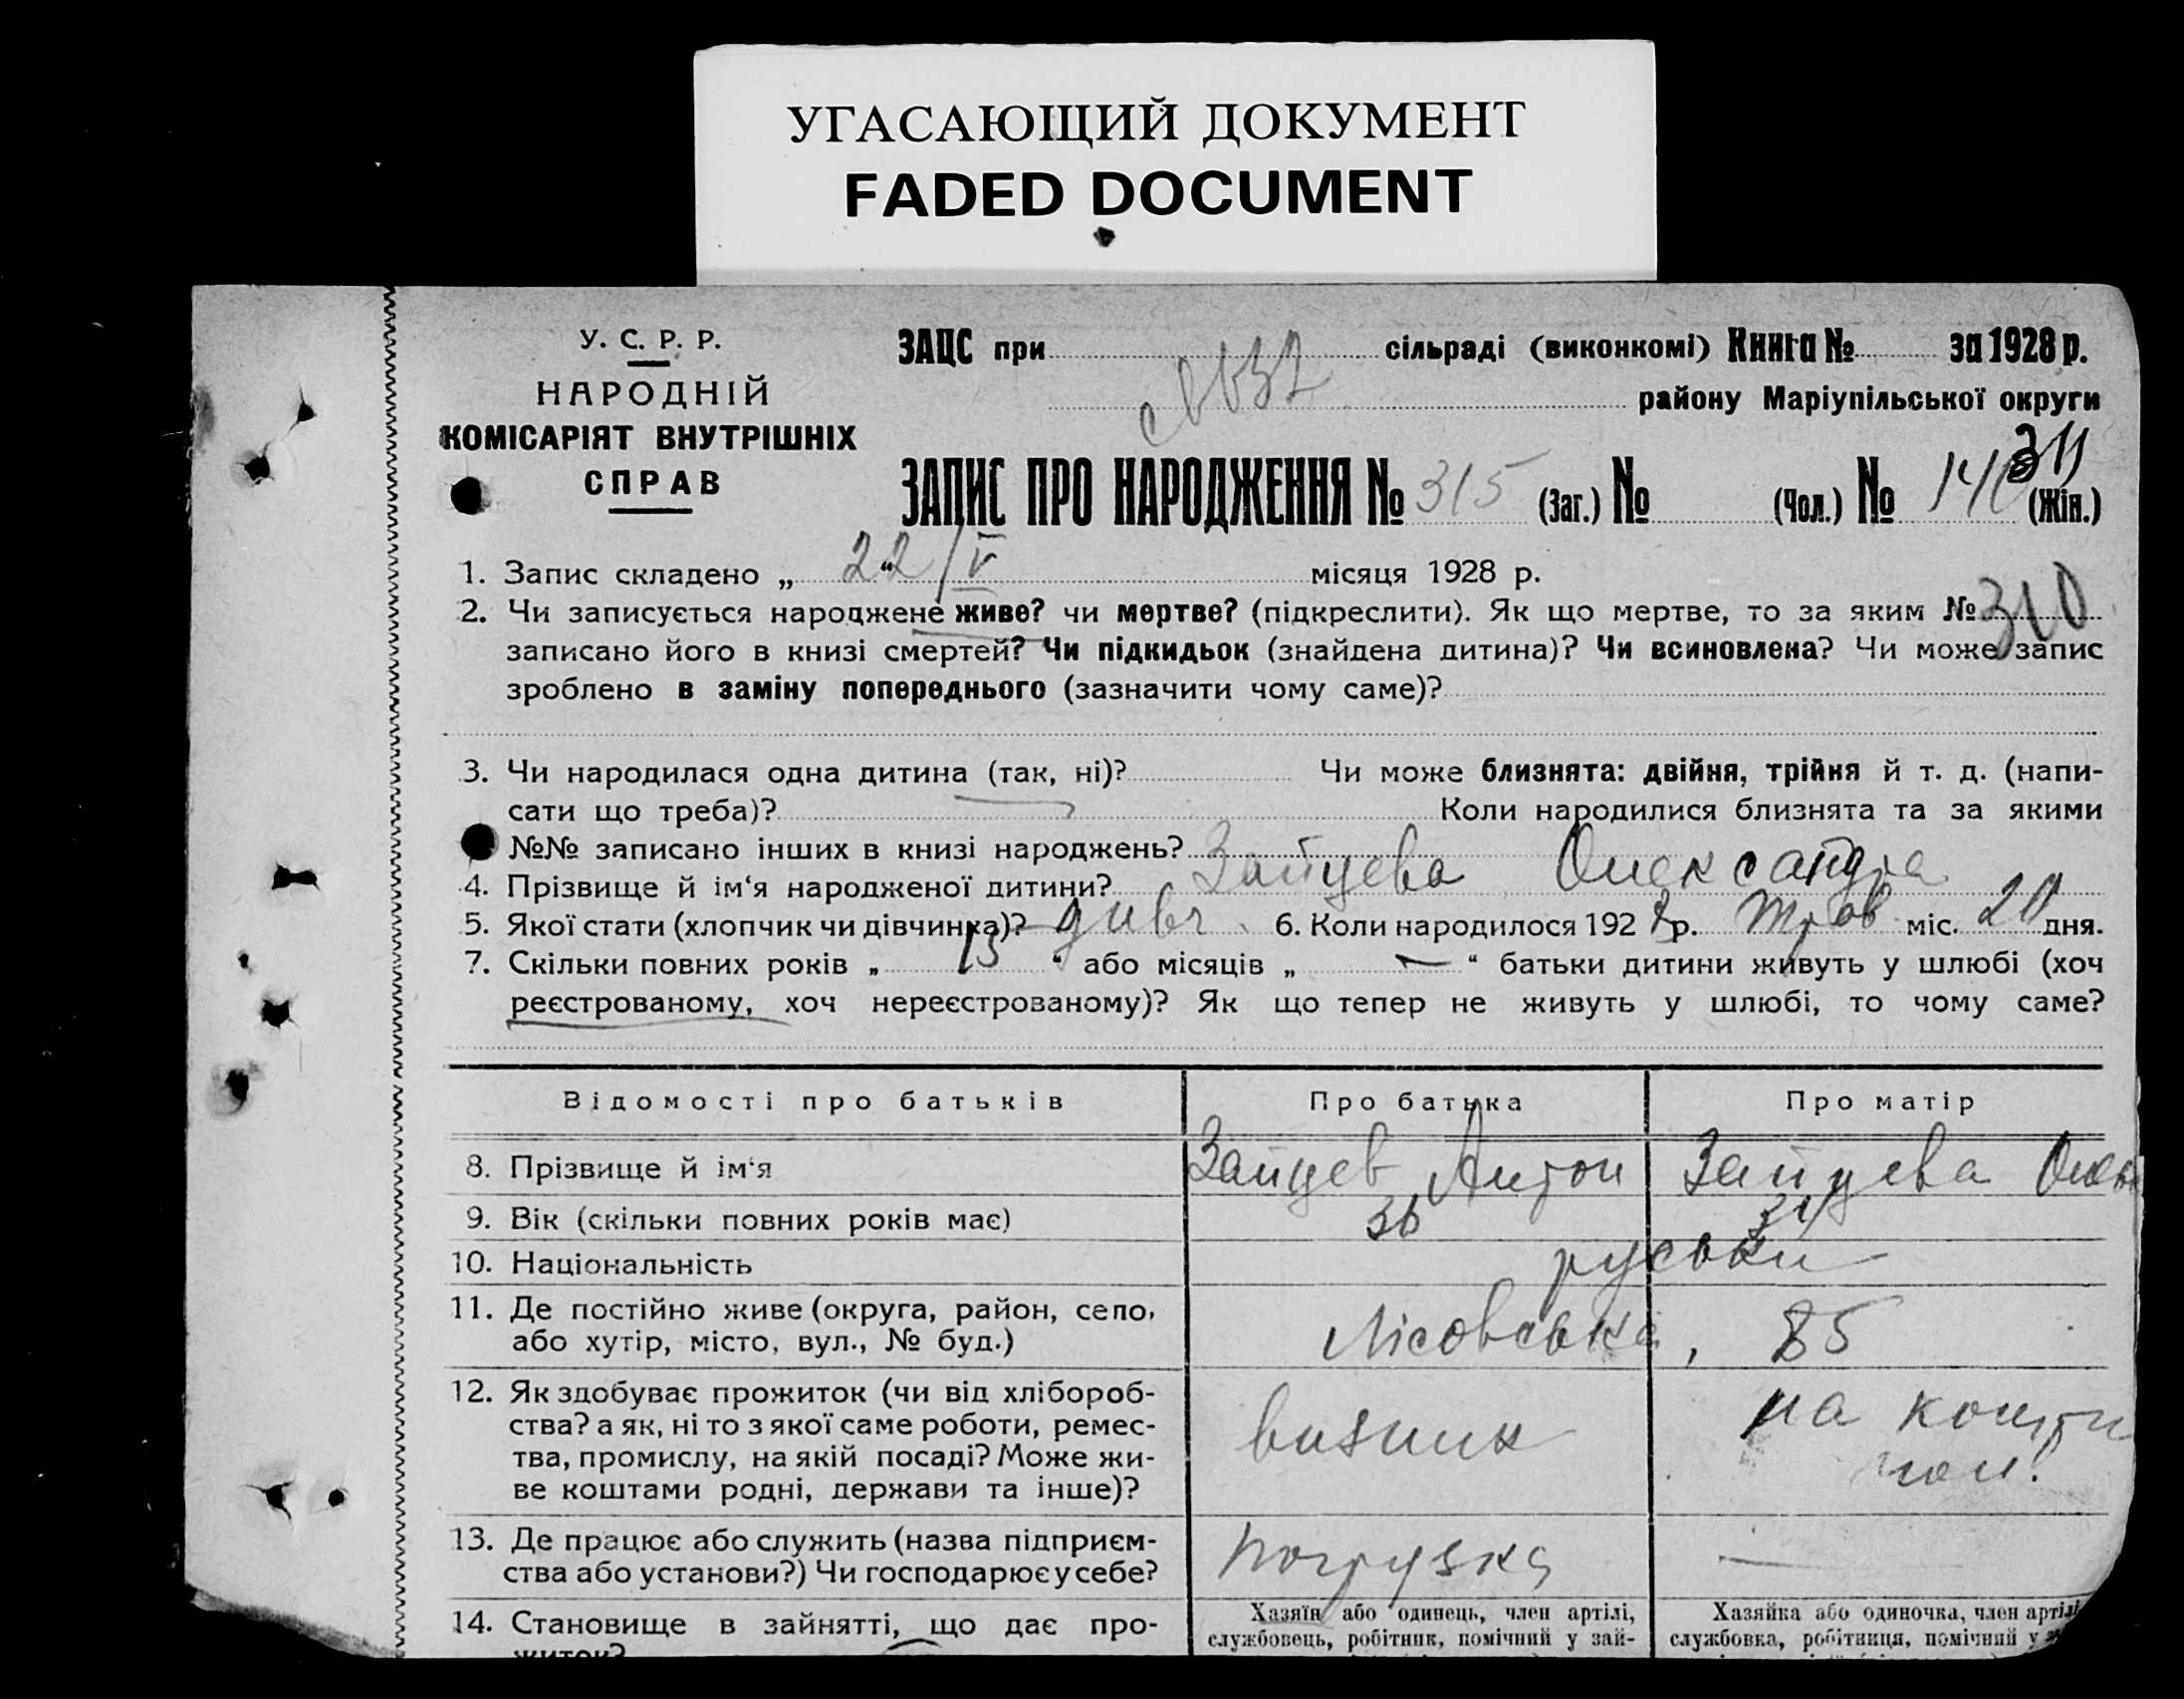 УГАСАЮЩИЙ ДОКУМЕНТ
FADED DOCUMENT
У. С. Р. Р.
НАРОДНІЙ
КОМІСАРІЯТ ВНУТРІШНІХ
СПРАВ
ЗАЦС при сільраді (виконкомі) Книга № за 1928 р.
району Маріупільської округи
ЗАПИС ПРО НАРОДЖЕННЯ № 315 (Заг.) № (Чол.) № (Жін.)
311
1. Запис складено „ 22 “ / V місяця 1928 р.
2. Чи записується народжене живе? чи мертве? (підкреслити). Як що мертве, то за яким № 310
записано його в книзі смертей? Чи підкидьок (знайдена дитина)? Чи всиновлена? Чи може запис
зроблено в заміну попереднього (зазначити чому саме)?
3. Чи народилася одна дитина (так, ні)? Чи може близнята: двійня, трійня й т. д. (напи-
сати що треба)? Коли народилися близнята та за якими
№№ записано інших в книзі народжень?
4. Прізвище й ім‘я народженої дитини? Зайцева Олександра
5. Якої стати (хлопчик чи дівчинка)? дивч. 6. Коли народилося 192 8 р. Трав міс. 20 дня.
7. Скільки повних років „ 13 “ або місяців „ — “ батьки дитини живуть у шлюбі (хоч
реєстрованому, хоч нереєстрованому)? Як що тепер не живуть у шлюбі, то чому саме?
Відомості про батьків Про батька Про матір
8. Прізвище й ім‘я Зайцев Антон Зайцева
9. Вік (скільки повних років має) 36 34
10. Національність руськи
11. Де постійно живе (округа, район, село,
або хутір, місто, вул., № буд.) Лісовська, 85
12. Як здобуває прожиток (чи від хлібороб-
ства? а як, ні то з якої саме роботи, ремес-
тва, промислу, на якій посаді? Може жи-
ве коштами родні, держави та інше)?
визник
на кошти
чол.
13. Де працює або служить (назва підприєм-
ства або установи?) Чи господарює у себе?
погрузка —
14. Становище в зайнятті, що дає про-
житок?
Хазяїн або одинець, член артілі,
службовець, робітник, помічний у зай-
Хазяйка або одиночка, член артілі
службовка, робітниця, помічний у